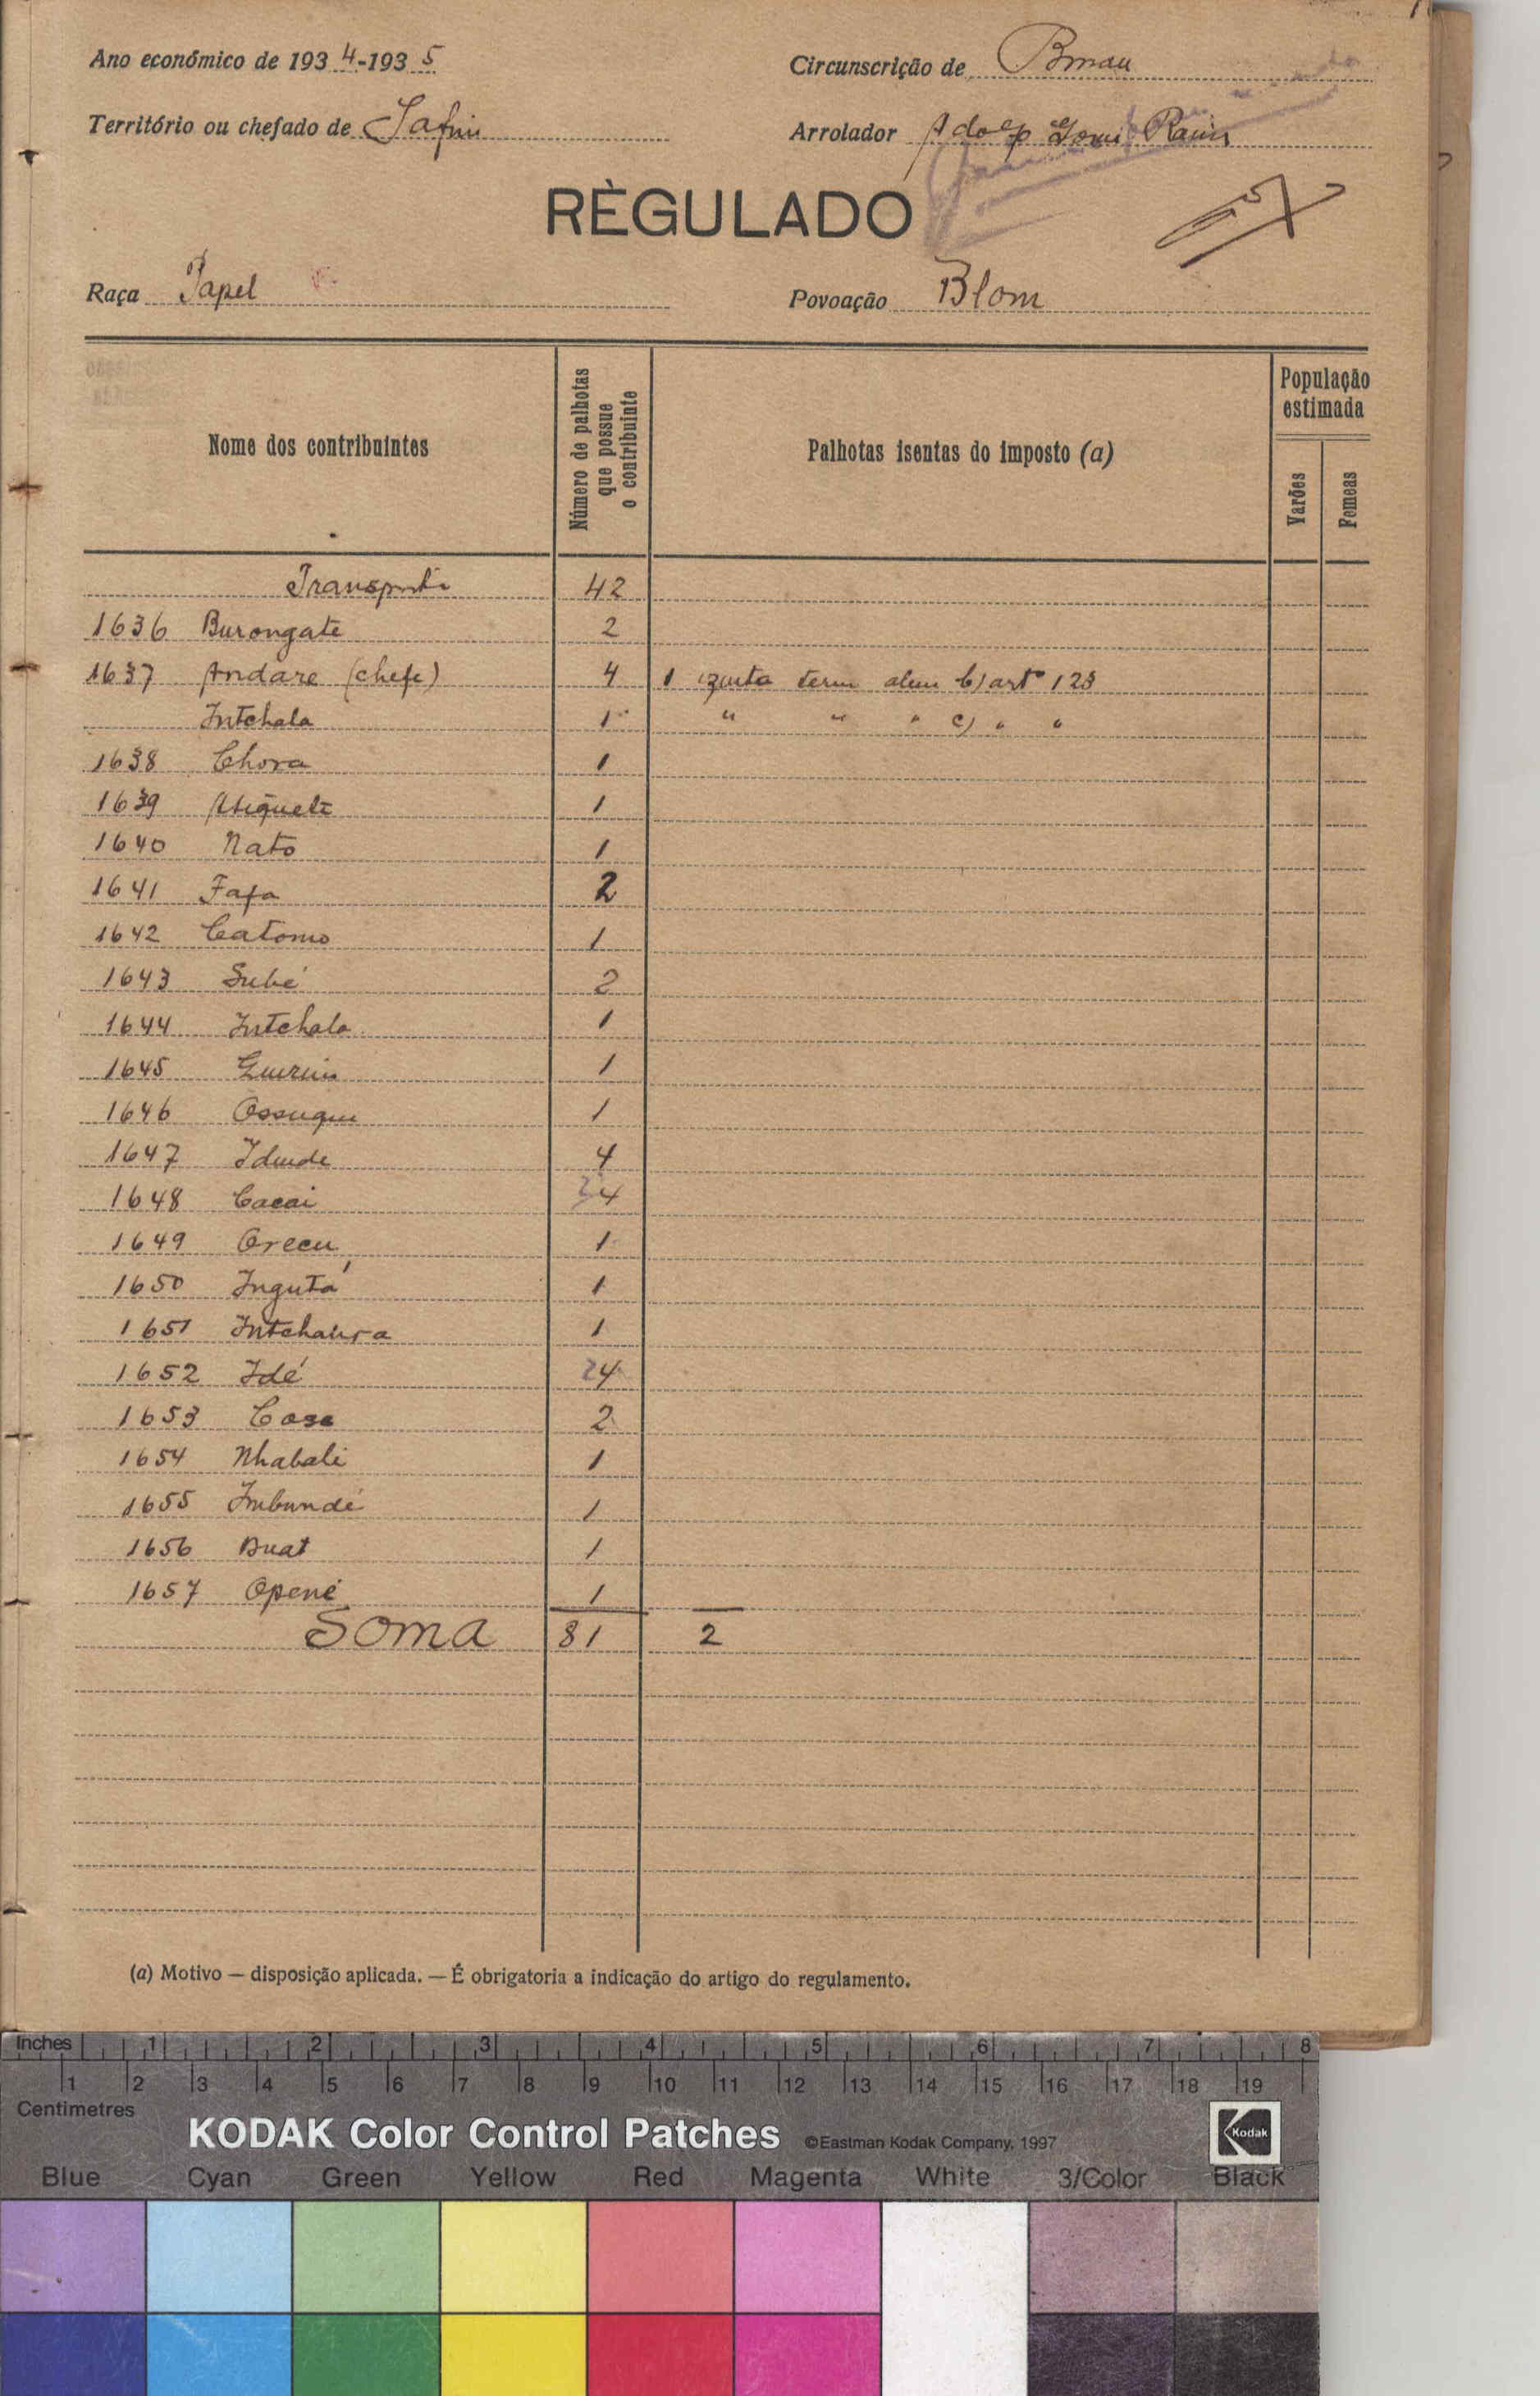 Ano económico de 1934-1935
Circunscrição de Bissau
Território ou chefado de Safim
Arrolador
RÈGULADO
Raça Papel
Povoação Blom
Nome dos contribuintes
Número de palhotas que possue o contribuinte
Palhotas isentas do imposto (a)
População estimada
Varões
Femeas
Transporte 42
1636 Burongate 2
1637 Andare (chefe) 4 1 isenta term alin b) artº 123
Intchala 1 " " " c) " "
1638 Chora 1
1639 1
1640 Nato 1
1641 Fafa 2
1642 Catomo 1
1643 Subé 2
1644 Intchala 1
1645 1
1646 Ossuque 1
1647 4
1648 Cacai 4
1649 Orecu 1
1650 Ingutá 1
1651 1
1652 Idé 24
1653 Casa 2
1654 Nhabali 1
1655 Imbundé 1
1656 Buat 1
1657 Opené 1
Soma 81 2
(a) Motivo — disposição aplicada. — É obrigatoria a indicação do artigo do regulamento.
Inches 1 2 3 4 5 6 7 8
1 2 3 4 5 6 7 8 9 10 11 12 13 14 15 16 17 18 19
Centimetres
KODAK Color Control Patches ©Eastman Kodak Company, 1997 Kodak
Blue Cyan Green Yellow Red Magenta White 3/Color Black